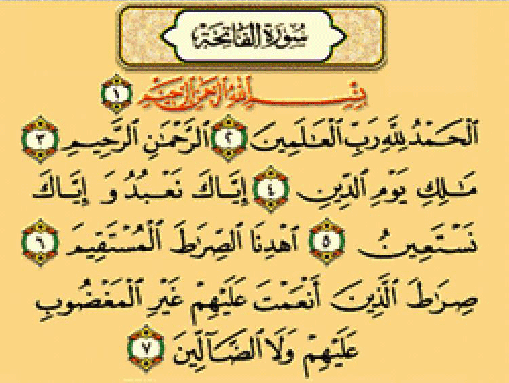 سُورَةُ الْفَاتِحَةِ
بِسْمِ اللَّهِ الرَّحْمَٰنِ الرَّحِيمِ ١
الْحَمْدُ لِلَّهِ رَبِّ الْعَالَمِينَ ٢ الرَّحْمَٰنِ الرَّحِيمِ ٣
مَالِكِ يَوْمِ الدِّينِ ٤ إِيَّاكَ نَعْبُدُ وَ إِيَّاكَ
نَسْتَعِينُ ٥ اهْدِنَا الصِّرَاطَ الْمُسْتَقِيمَ ٦
صِرَاطَ الَّذِينَ أَنْعَمْتَ عَلَيْهِمْ غَيْرِ الْمَغْضُوبِ
عَلَيْهِمْ وَلَا الضَّالِّينَ ٧